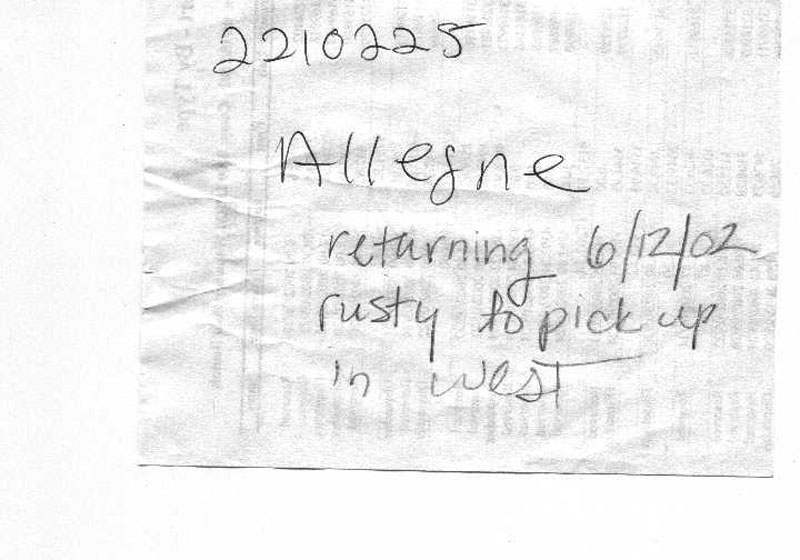 2210225
Allegne
returning 6/12/02
rusty to pick up
in west